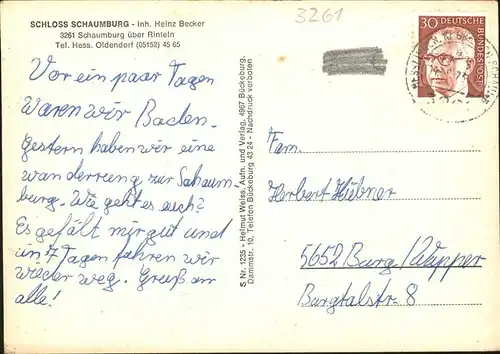 SCHLOSS SCHAUMBURG - Inh. Heinz Becker
3261 Schaumburg über Rinteln
Tel. Hess. Oldendorf (05152) 45 65
3261
30 DEUTSCHE
BUNDESPOST
Vor ein paar Tagen
waren wir Baden.
gestern haben wir eine
wanderrung zur Schaum-
burg. Wie geht es euch?
Es gefält mir gut und
in 7 Tagen fahren wir
wieder weg. Gruß an
alle!
S Nr. 1235 - Helmut Weiss, Aufn. und Verlag, 4967 Bückeburg,
Dammstr. 10, Telefon Bückeburg 43 24 - Nachdruck verboten
Fam.
Herbert Hübner
5652 Burg/Wupper
Burgtalstr. 8